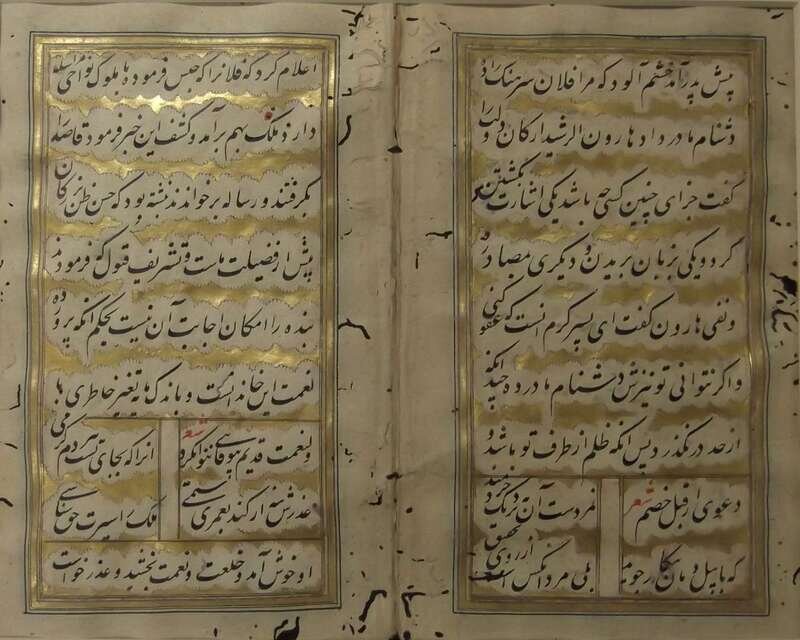 پیش پدر آمد خشم آلود که مرا فلان سرهنگ زاده
دشنام مادر داد هارون الرشید ارکان دولت را
گفت جزای چنین کسی چه باشد یکی اشارت بکشتن
کرد و یکی بزبان بریدن و دیگری بمصادره
و نفی هارون گفت ای پسر کرم آنست که عفو کنی
و اگر نتوانی تو نیزش دشنام مادر ده چندانکه
از حد درنگذرد پس آنکه ظلم از طرف تو باشد و
دعوی از قبل خصم شعر نه مردست آن بنزدیک خردمند
که با پیل دمان پیکار جوید بلی مرد آنکس است از روی تحقیق
اعلام کرد که فلانرا که حبس فرموده با ملوک نواحی مراسله
دارد ملک بهم برآمد و کشف این خبر فرمود قاصد را
بگرفتند و رساله برخواندند نبشته بود که حسن ظن بزرگان
بیش از فضیلت ماست و تشریف قبول که فرمودند
بنده را امکان اجابت آن نیست بحکم آنکه پرورده
نعمت این خاندانست و باندک مایه تغیر خاطری با
ولینعمت قدیم بیوفایی نتوان کرد شعر آنرا که بجای تست هر دم کرمی
عذرش بنه ار کند بعمری ستمی ملک را سیرت حق شناسی
او خوش آمد و خلعت و نعمت بخشید و عذر خواست